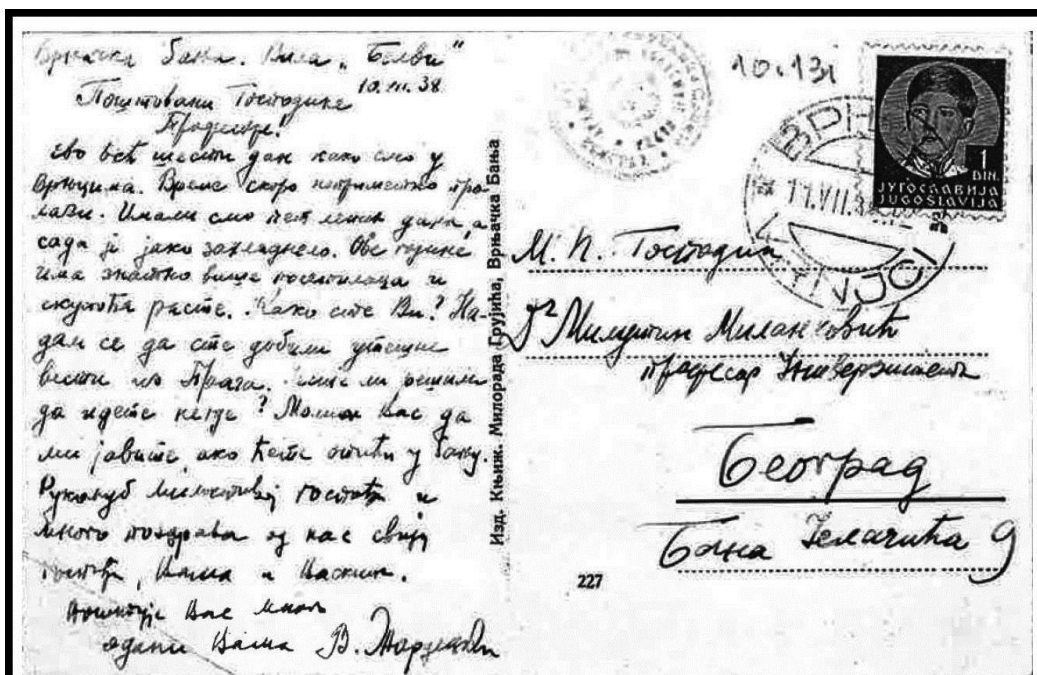 Врњачка Бања. Вила „
10.VII.38
Поштовани Господине
Професоре!
Ево већ шести дан како смо у
Врњцима. Време скоро неприметно про-
лази. Имали смо пет лепих дана, а
сада је јако захладнело. Ове године
има знатно више посетилаца и
скупоћа расте. Како сте Ви? На-
дам се да сте добили утешне
вести из Прага. Јесте ли решили
да идете негде? Молим Вас да
ми јавите, ако ћете отићи у Бању.
Рукољуб милостивој госпођи и
много поздрава од нас свију
госпођи, Вама и Васкии.
Поштује Вас много
одани Вама В.
Изд. Књиж. Милорада Грујића, Врњачка Бања
227
10.131
1
DIN.
ЈУГОСЛАВИЈА
JUGOSLAVIJA
11.VII.38
VRNJCI
М. П. Господин
Dr Милутин Миланковић
професор Универзитета
Београд
Бана Јелачића 9